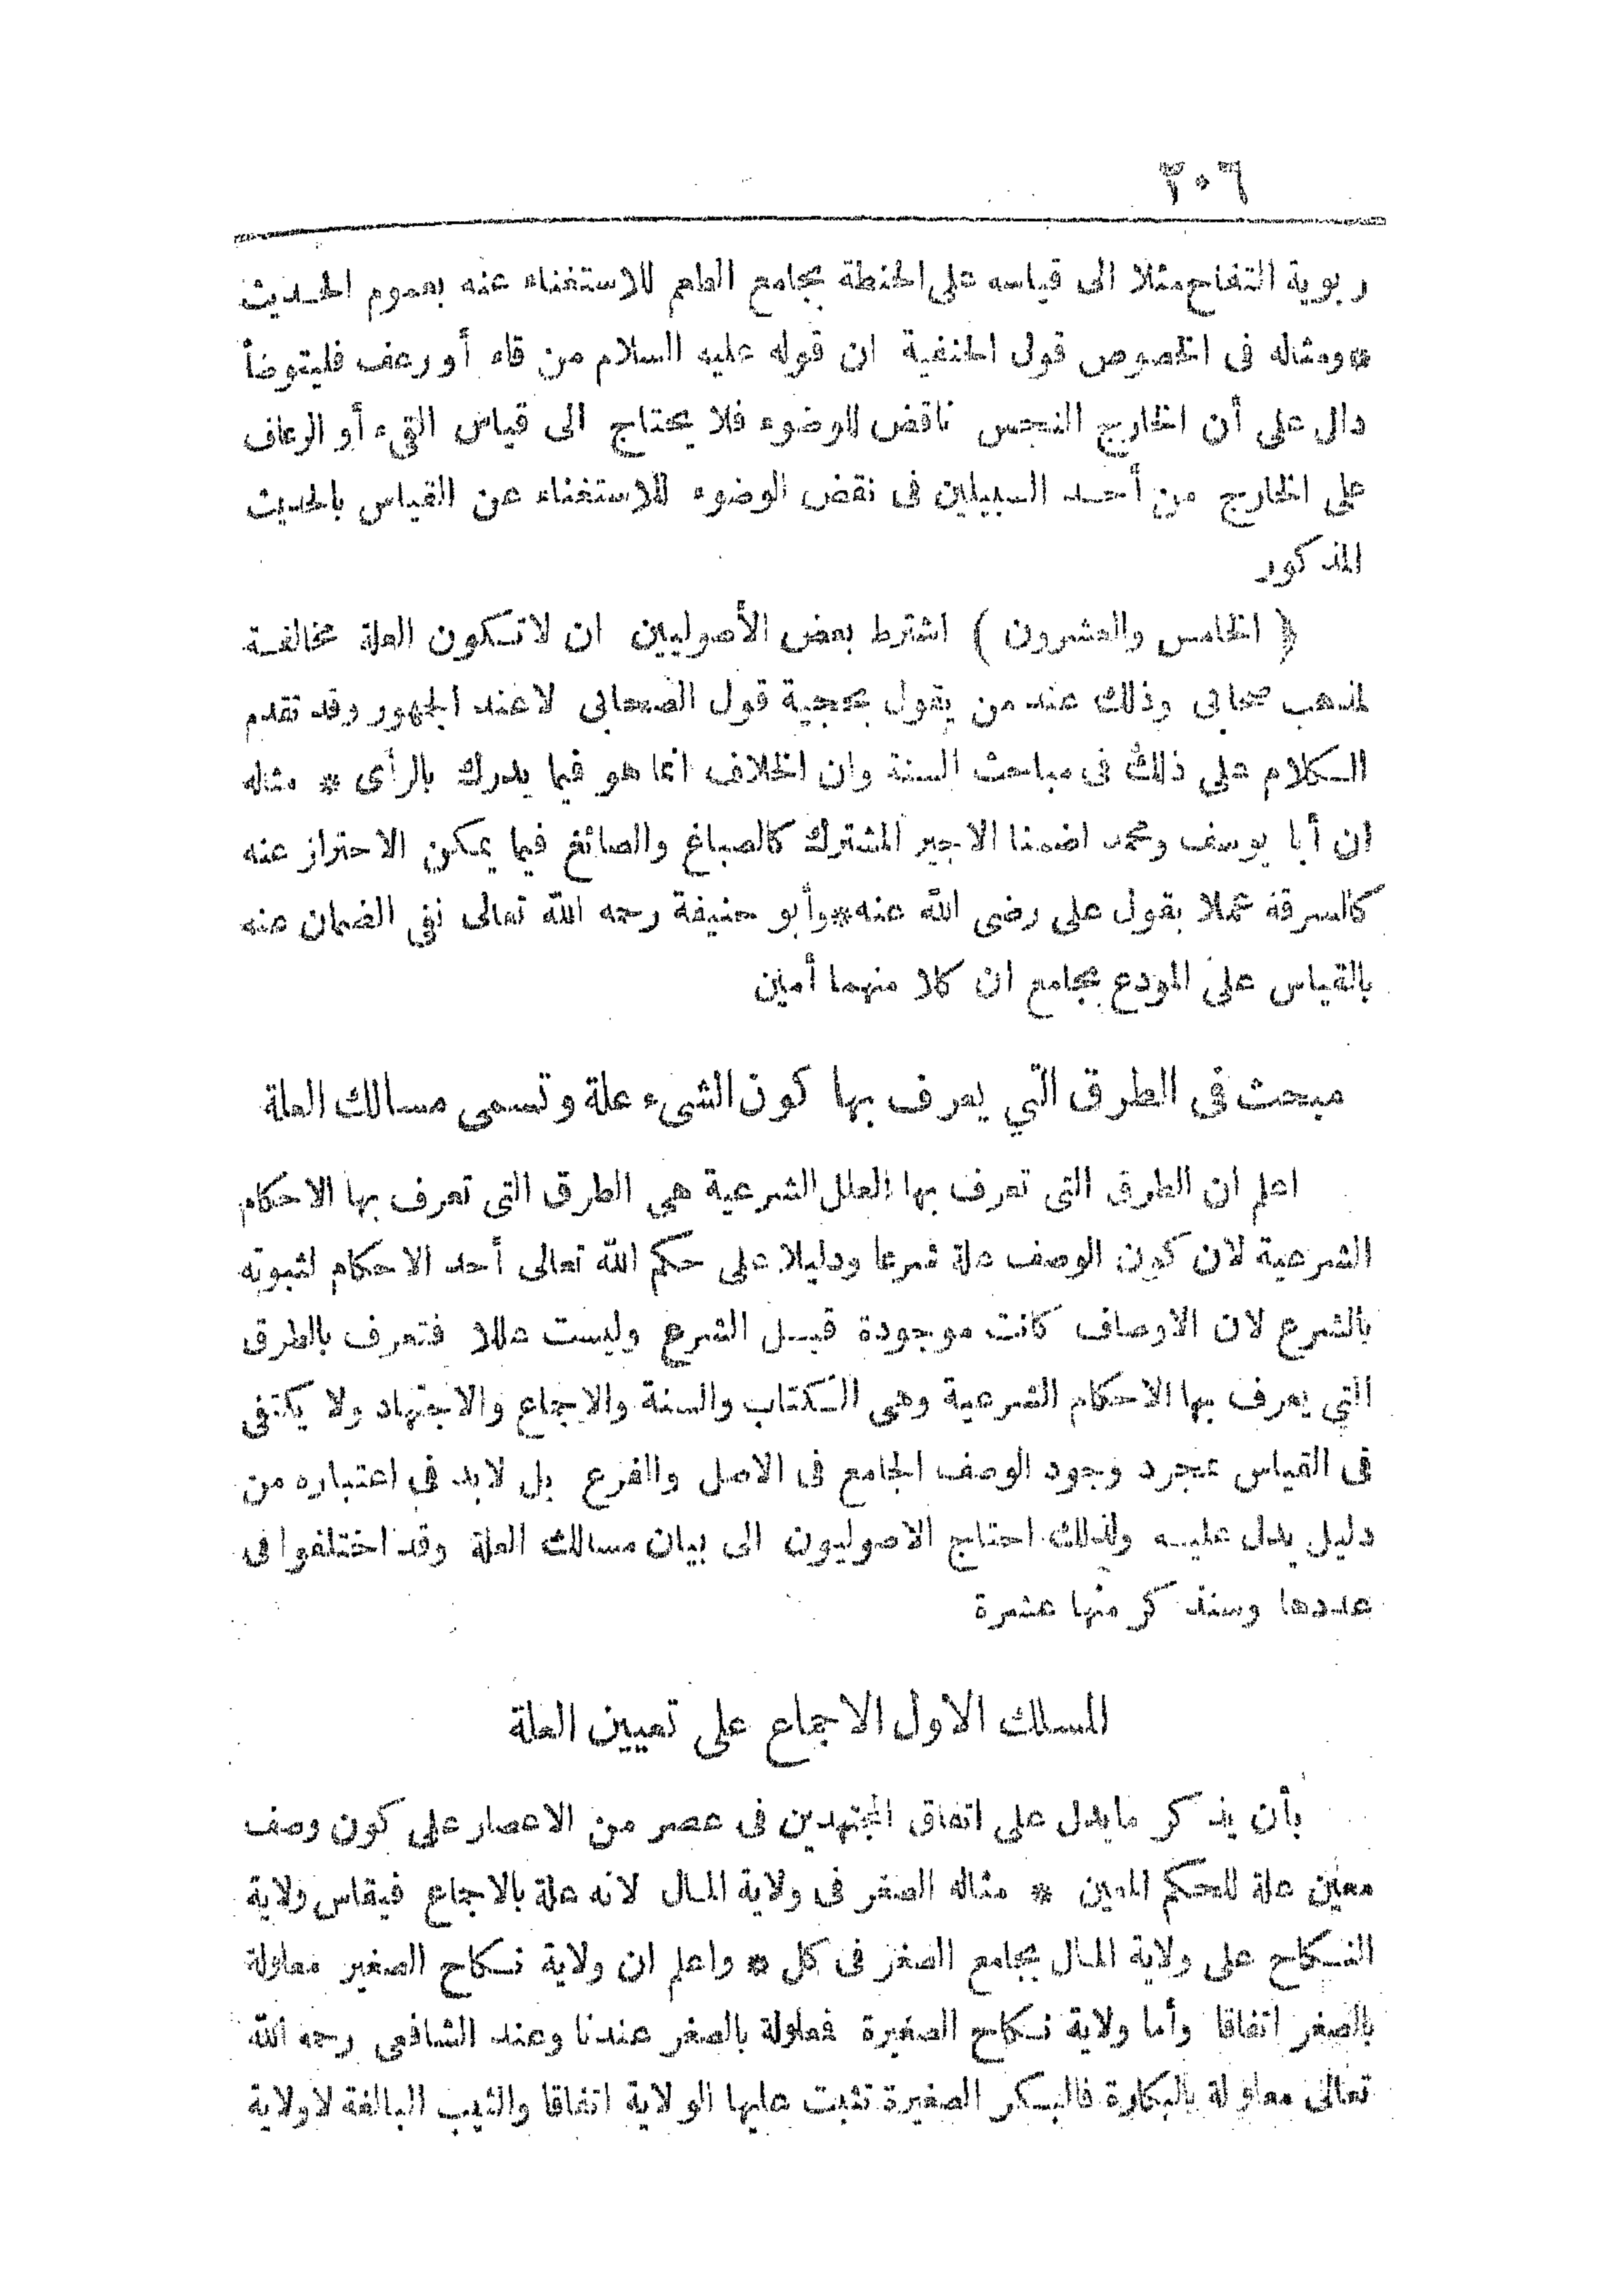 ٣٠٦
ربوية التفاح مثلا الى قياسه على الحنطة بجامع الطعم للاستغناء عنه بعموم الحديث
*ومثاله فى الخصوص قول الحنفية ان قوله عليه السلام من قاء أو رعف فليتوضأ
دال على أن الخارج النجس ناقض للوضوء فلا يحتاج الى قياس القىء أو الرعاف
على الخارج من أحد السبيلين فى نقض الوضوء للاستغناء عن القياس بالحديث
المذكور
﴿ الخامس والعشرون ) اشترط بعض الأصوليين ان لا تكون العلة مخالفة
لمذهب صحابى وذلك عند من يقول بحجية قول الصحابى لا عند الجمهور وقد تقدم
الكلام على ذلك فى مباحث السنة وان الخلاف انما هو فيما يدرك بالرأى * مثاله
ان أبا يوسف ومحمد اضمنا الاجير المشترك كالصباغ والصائغ فيما يمكن الاحتراز عنه
كالسرقة عملا بقول على رضى الله عنه*وأبو حنيفة رحمه الله تعالى نفى الضمان عنه
بالقياس على المودع بجامع ان كلا منهما أمين
مبحث فى الطرق التي يعرف بها كون الشىء علة وتسمى مسالك العلة
اعلم ان الطرق التى تعرف بها العلل الشرعية هى الطرق التى تعرف بها الاحكام
الشرعية لان كون الوصف علة شرعا ودليلا على حكم الله تعالى أحد الاحكام لثبوته
بالشرع لان الاوصاف كانت موجودة قبل الشرع وليست عللا فتعرف بالطرق
التي يعرف بها الاحكام الشرعية وهى الكتاب والسنة والاجماع والاجتهاد ولا يكتفى
فى القياس بمجرد وجود الوصف الجامع فى الاصل والفرع بل لابد فى اعتباره من
دليل يدل عليه ولذلك احتاج الاصوليون الى بيان مسالك العلة وقد اختلفوا فى
عددها وسنذكر منها عشرة
المسلك الاول الاجماع على تعيين العلة
بأن يذكر ما يدل على اتفاق المجتهدين فى عصر من الاعصار على كون وصف
معين علة للحكم المعين * مثاله الصغر فى ولاية المال لانه علة بالاجماع فيقاس ولاية
النكاح على ولاية المال بجامع الصغر فى كل * واعلم ان ولاية نكاح الصغير معلولة
بالصغر اتفاقا وأما ولاية نكاح الصغيرة فمعلولة بالصغر عندنا وعند الشافعى رحمه الله
تعالى معلولة بالبكارة فالبكر الصغيرة تثبت عليها الولاية اتفاقا والثيب البالغة لا ولاية